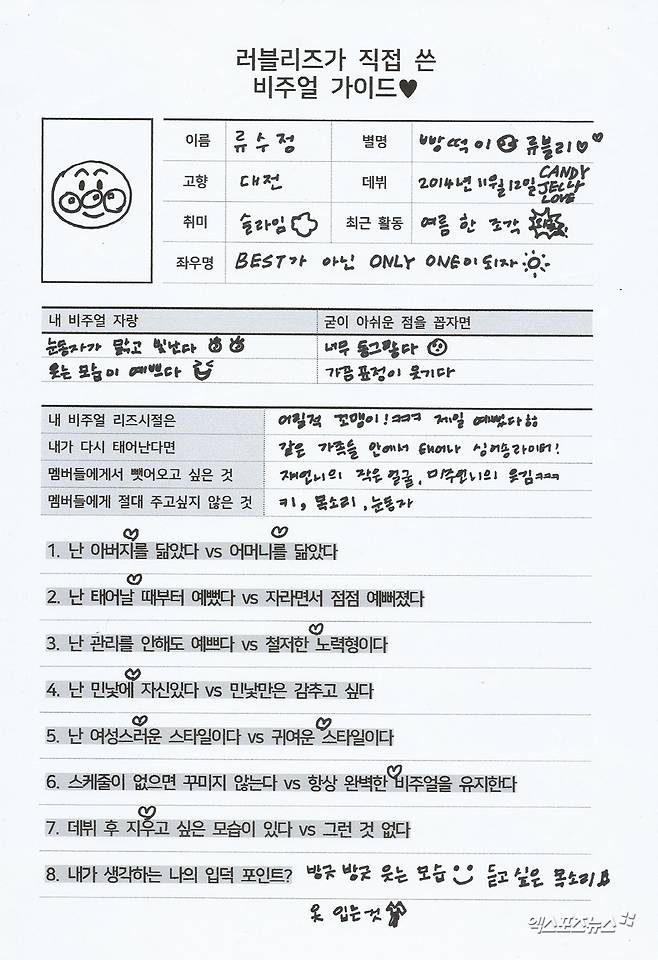 러블리즈가 직접 쓴
비주얼 가이드♥
이름 류수정 별명 빵떡이 류블리♡♥
고향 대전 데뷔 2014년 11월 12일 CANDY JELLY LOVE
취미 슬라임 최근 활동 여름 한 조각
좌우명 BEST가 아닌 ONLY ONE이 되자
내 비주얼 자랑 굳이 아쉬운 점을 꼽자면
눈동자가 맑고 빛난다 너무 동그랗다
웃는 모습이 예쁘다 가끔 표정이 웃기다
내 비주얼 리즈시절은 어릴적 꼬맹이!ㅋㅋㅋ 제일 예뻤다ㅎㅎ
내가 다시 태어난다면 같은 가족들 안에서 태어나 싱어송라이터!
멤버들에게서 뺏어오고 싶은 것 재언니의 작은 얼굴, 미주언니의 웃김ㅋㅋㅋ
멤버들에게 절대 주고싶지 않은 것 키, 목소리, 눈동자
1. 난 아버지를 닮았다 vs 어머니를 닮았다
2. 난 태어날 때부터 예뻤다 vs 자라면서 점점 예뻐졌다
3. 난 관리를 안해도 예쁘다 vs 철저한 노력형이다
4. 난 민낯에 자신있다 vs 민낯만은 감추고 싶다
5. 난 여성스러운 스타일이다 vs 귀여운 스타일이다
6. 스케줄이 없으면 꾸미지 않는다 vs 항상 완벽한 비주얼을 유지한다
7. 데뷔 후 지우고 싶은 모습이 있다 vs 그런 것 없다
8. 내가 생각하는 나의 입덕 포인트? 방긋 방긋 웃는 모습 듣고 싶은 목소리
옷 입는 것
엑스포츠뉴스